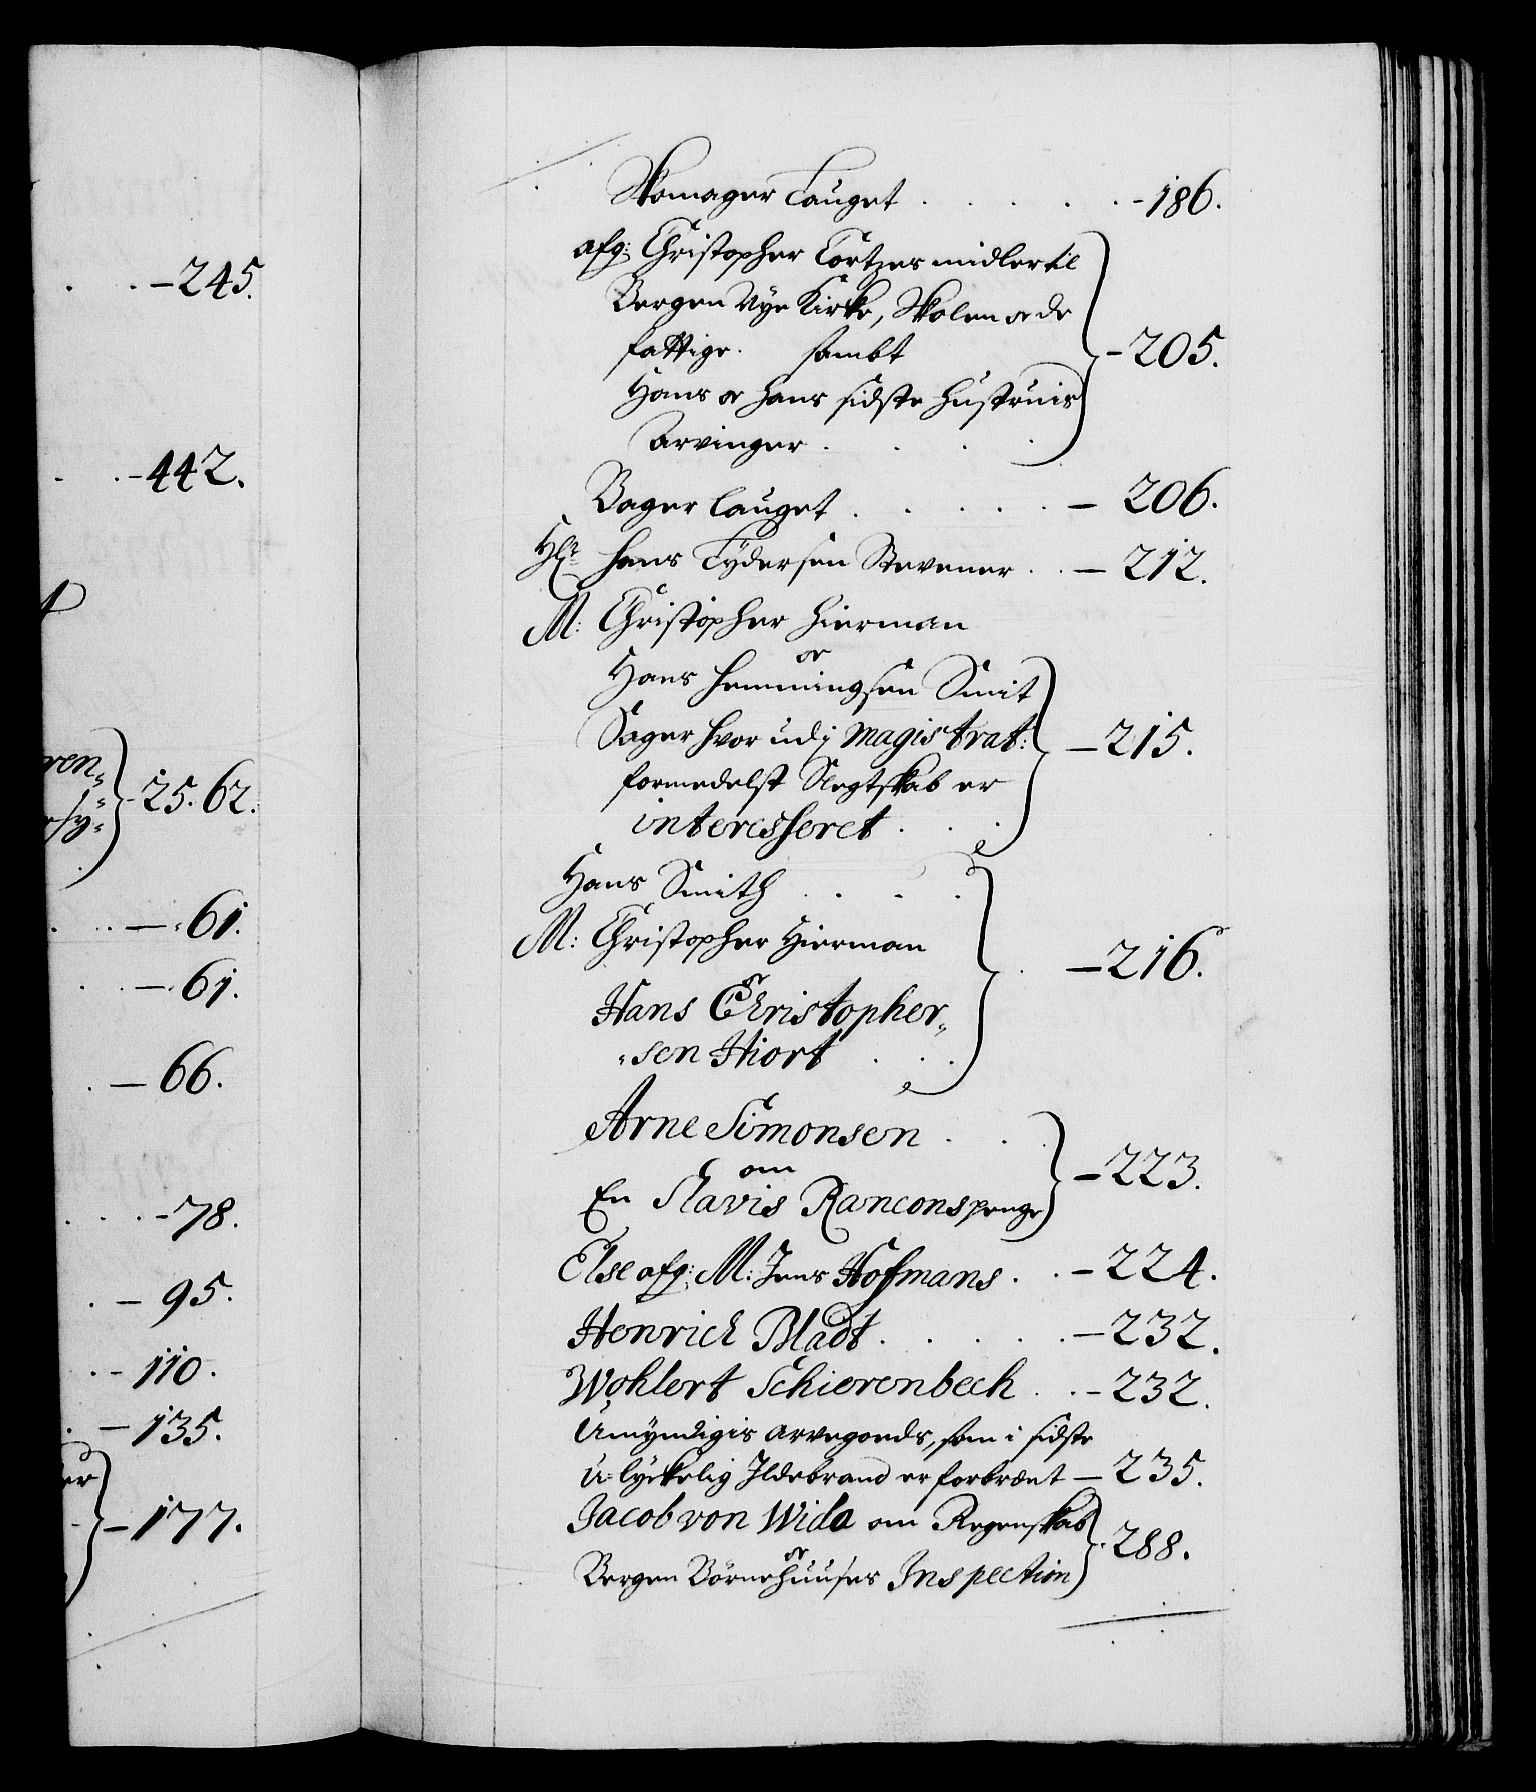 -245.
-442.
ren-
-25. 62.
-61.
-61.
-66.
-78.
-95.
-110.
-135.
er
-177.
Skomager Lauget . . . . . -186.
afg: Christopher Tortzes midler til
Bergen Nye Kirke, Skolen og de
fattige. sambt -205.
Hans og hans sidste Hustruis
Arvinger . . .
Bager lauget . . . . . - 206.
Hans Tydersen Stevener . . - 212.
M: Christopher Hierman
og
Hans Henningsen Smit
Sager hvor udj Magistrat: -215.
formedelst Slegtskab er
interesseret . . .
Hans Smith . . . .
M: Christopher Hierman
-216.
og
Hans Christopher-
-sen Hiort . . .
Arne Simonsen . . .
om -223.
En Slavis Ranconspenge
Else afg: M: Jens Hofmans . . -224.
Henrich Bladt . . . . . -232.
Wohlert Schierenbech . . -232.
Umyndigis Arvegoeds, som i sidste
U-lyckelig Ildebrand er forbrænt - 235.
Jacob von Wida om Regenskab
og -288.
Bergen Børnehuuses Inspection